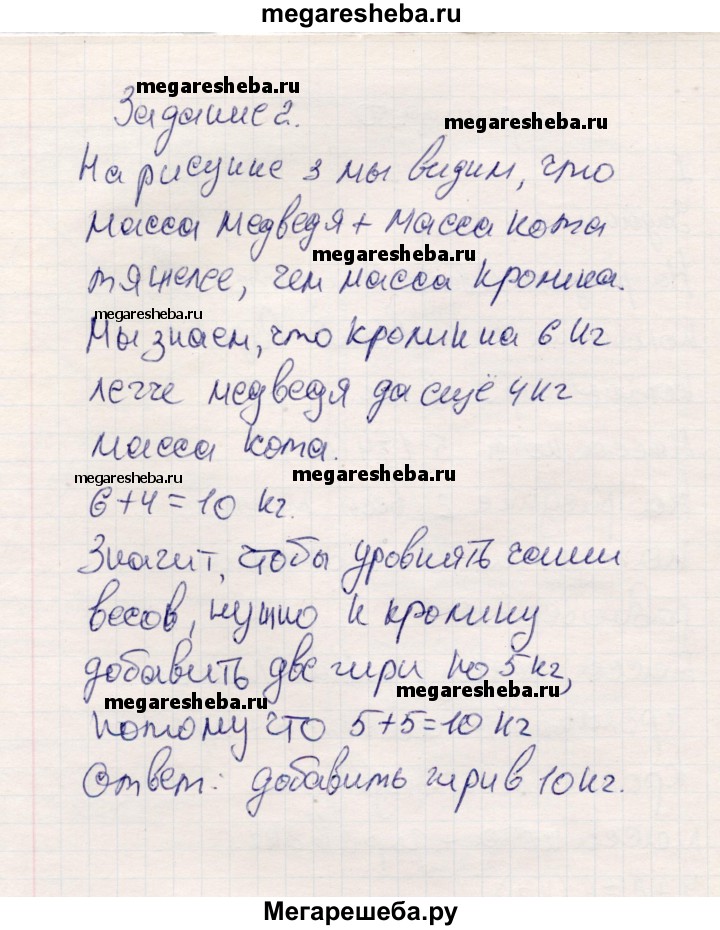 megaresheba.ru
megaresheba.ru
Задание 2.
megaresheba.ru
На рисунке 3 мы видим, что
масса медведя + масса кота
megaresheba.ru
тяжелее, чем масса кролика.
megaresheba.ru
Мы знаем, что кролик на 6 кг
легче медведя да ещё 4 кг
масса кота.
megaresheba.ru
megaresheba.ru
6+4=10 кг.
Значит, чтобы уровнять чаши
весов, нужно к кролику
добавить две гири по 5 кг,
megaresheba.ru
megaresheba.ru
потому что 5+5=10 кг
Ответ: добавить гири в 10 кг.
Мегарешеба.ру